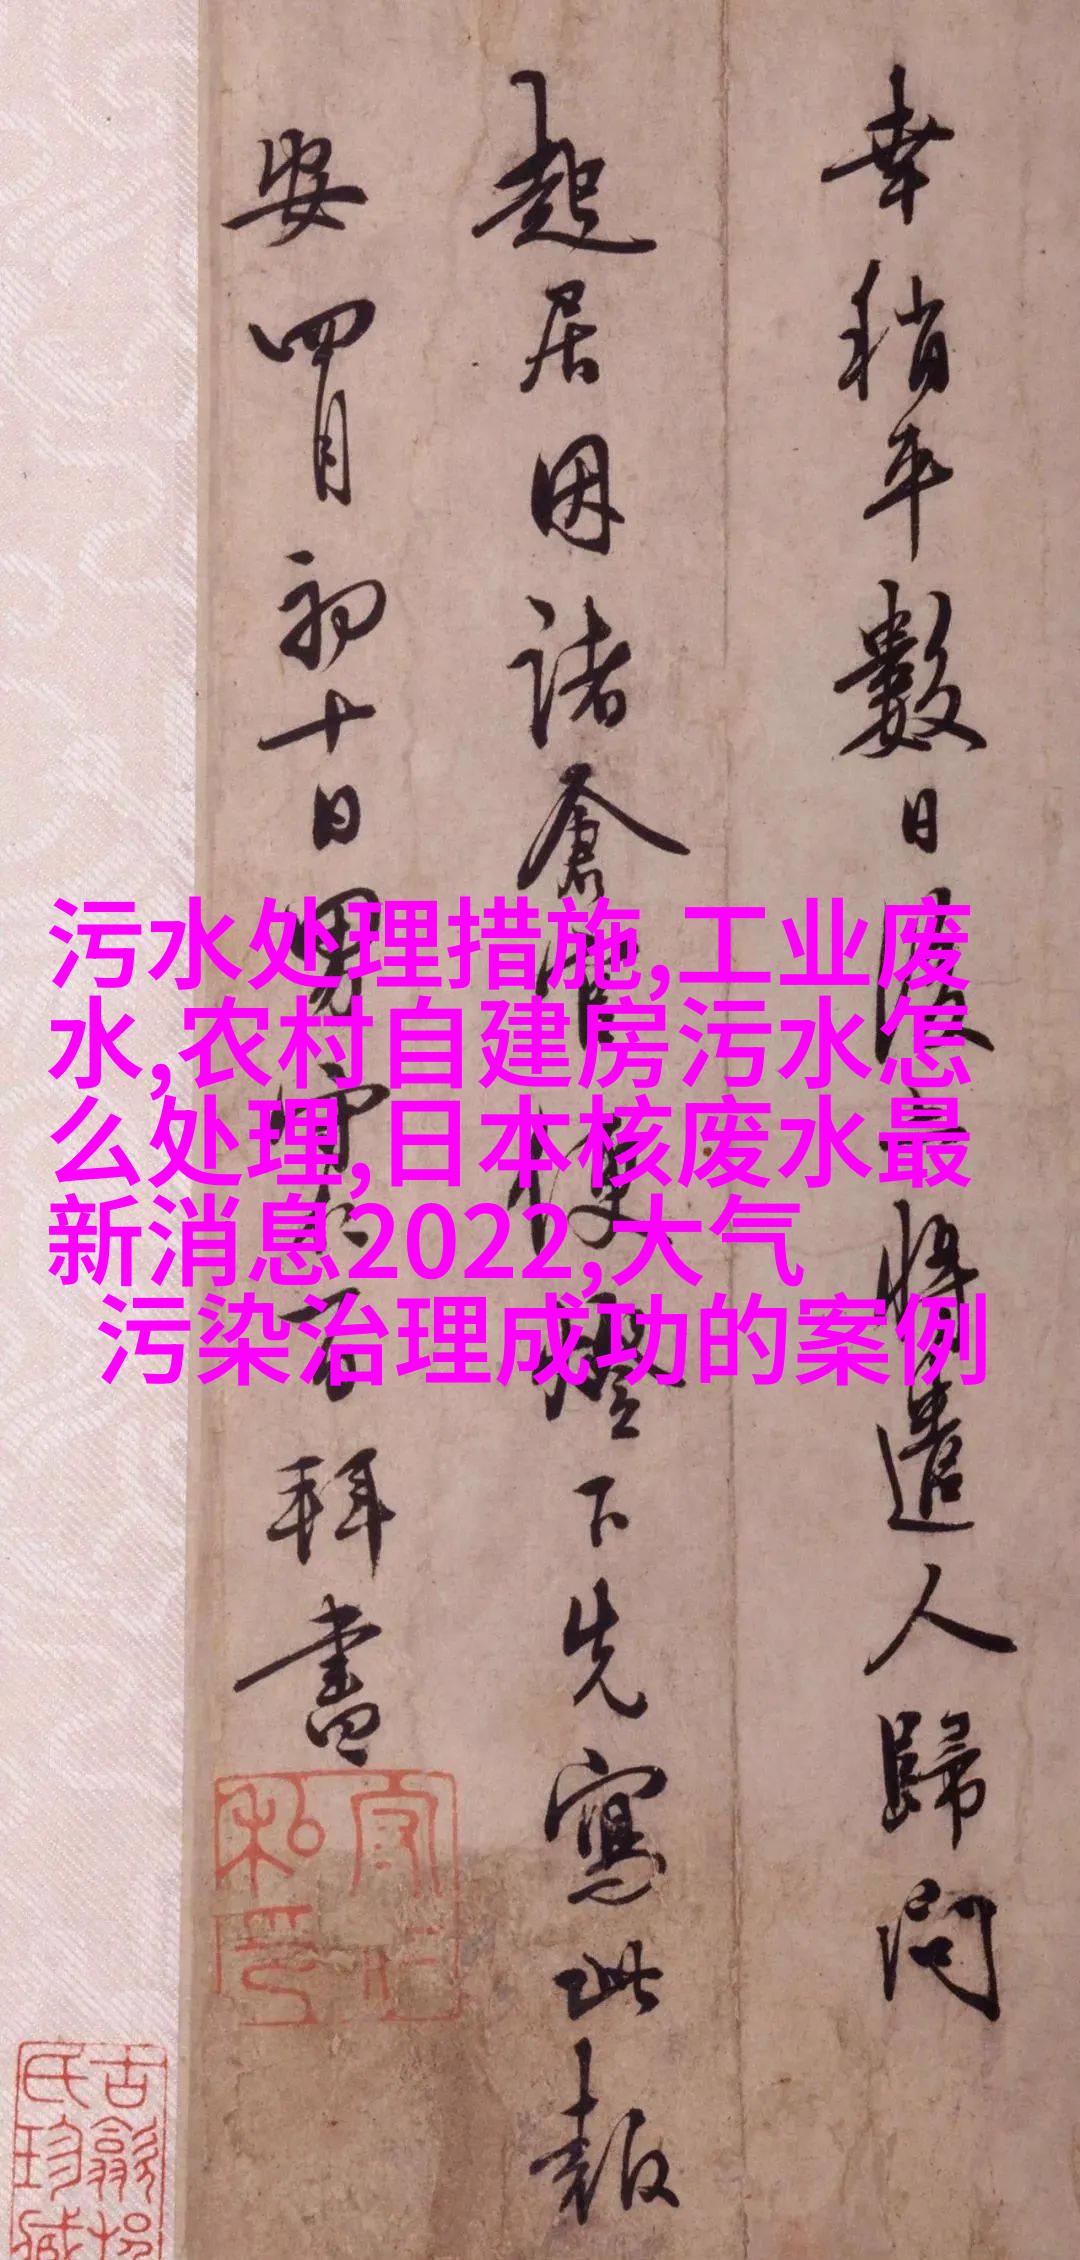 幸稍平數日後將遣人歸問
起居因諸倉燈下先寫此報
安四月初十日男百拜書
污水处理措施,工业废
水,农村自建房污水怎
么处理,日本核废水最
新消息2022,大气
污染治理成功的案例
私印
古歙
氏珍藏